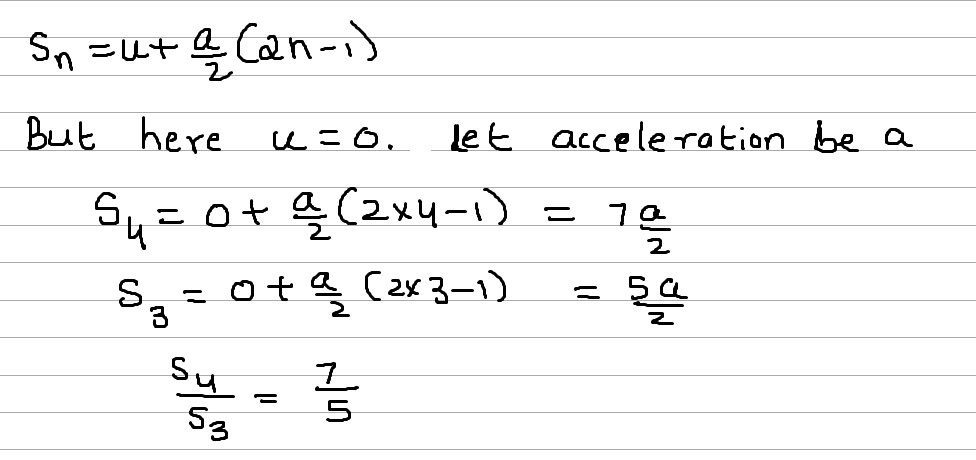 Sn = u + a/2 (2n-1)
But here u = 0. let acceleration be a
S4 = 0 + a/2 (2x4-1) = 7a/2
S3 = 0 + a/2 (2x3-1) = 5a/2
S4/S3 = 7/5